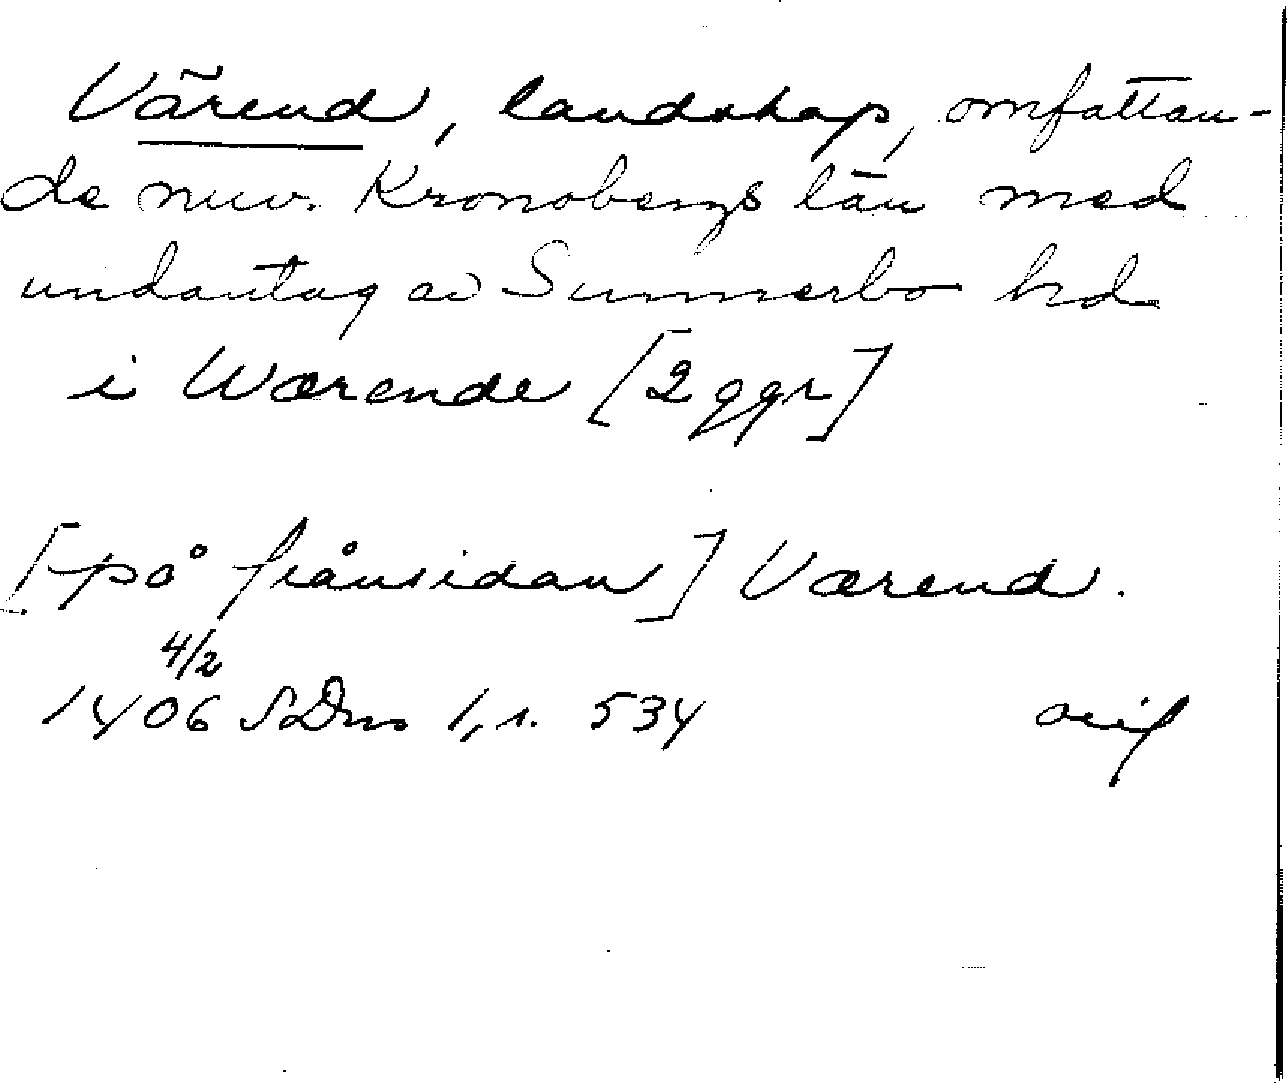 Värend, landskap, omfattan-
de nuv. Kronobergs län med
undantag av Sunnerbo hd
i Wærende [2 ggr]
[på frånsidan] Værend.
4/2
1406 SDns 1, s. 534 orif